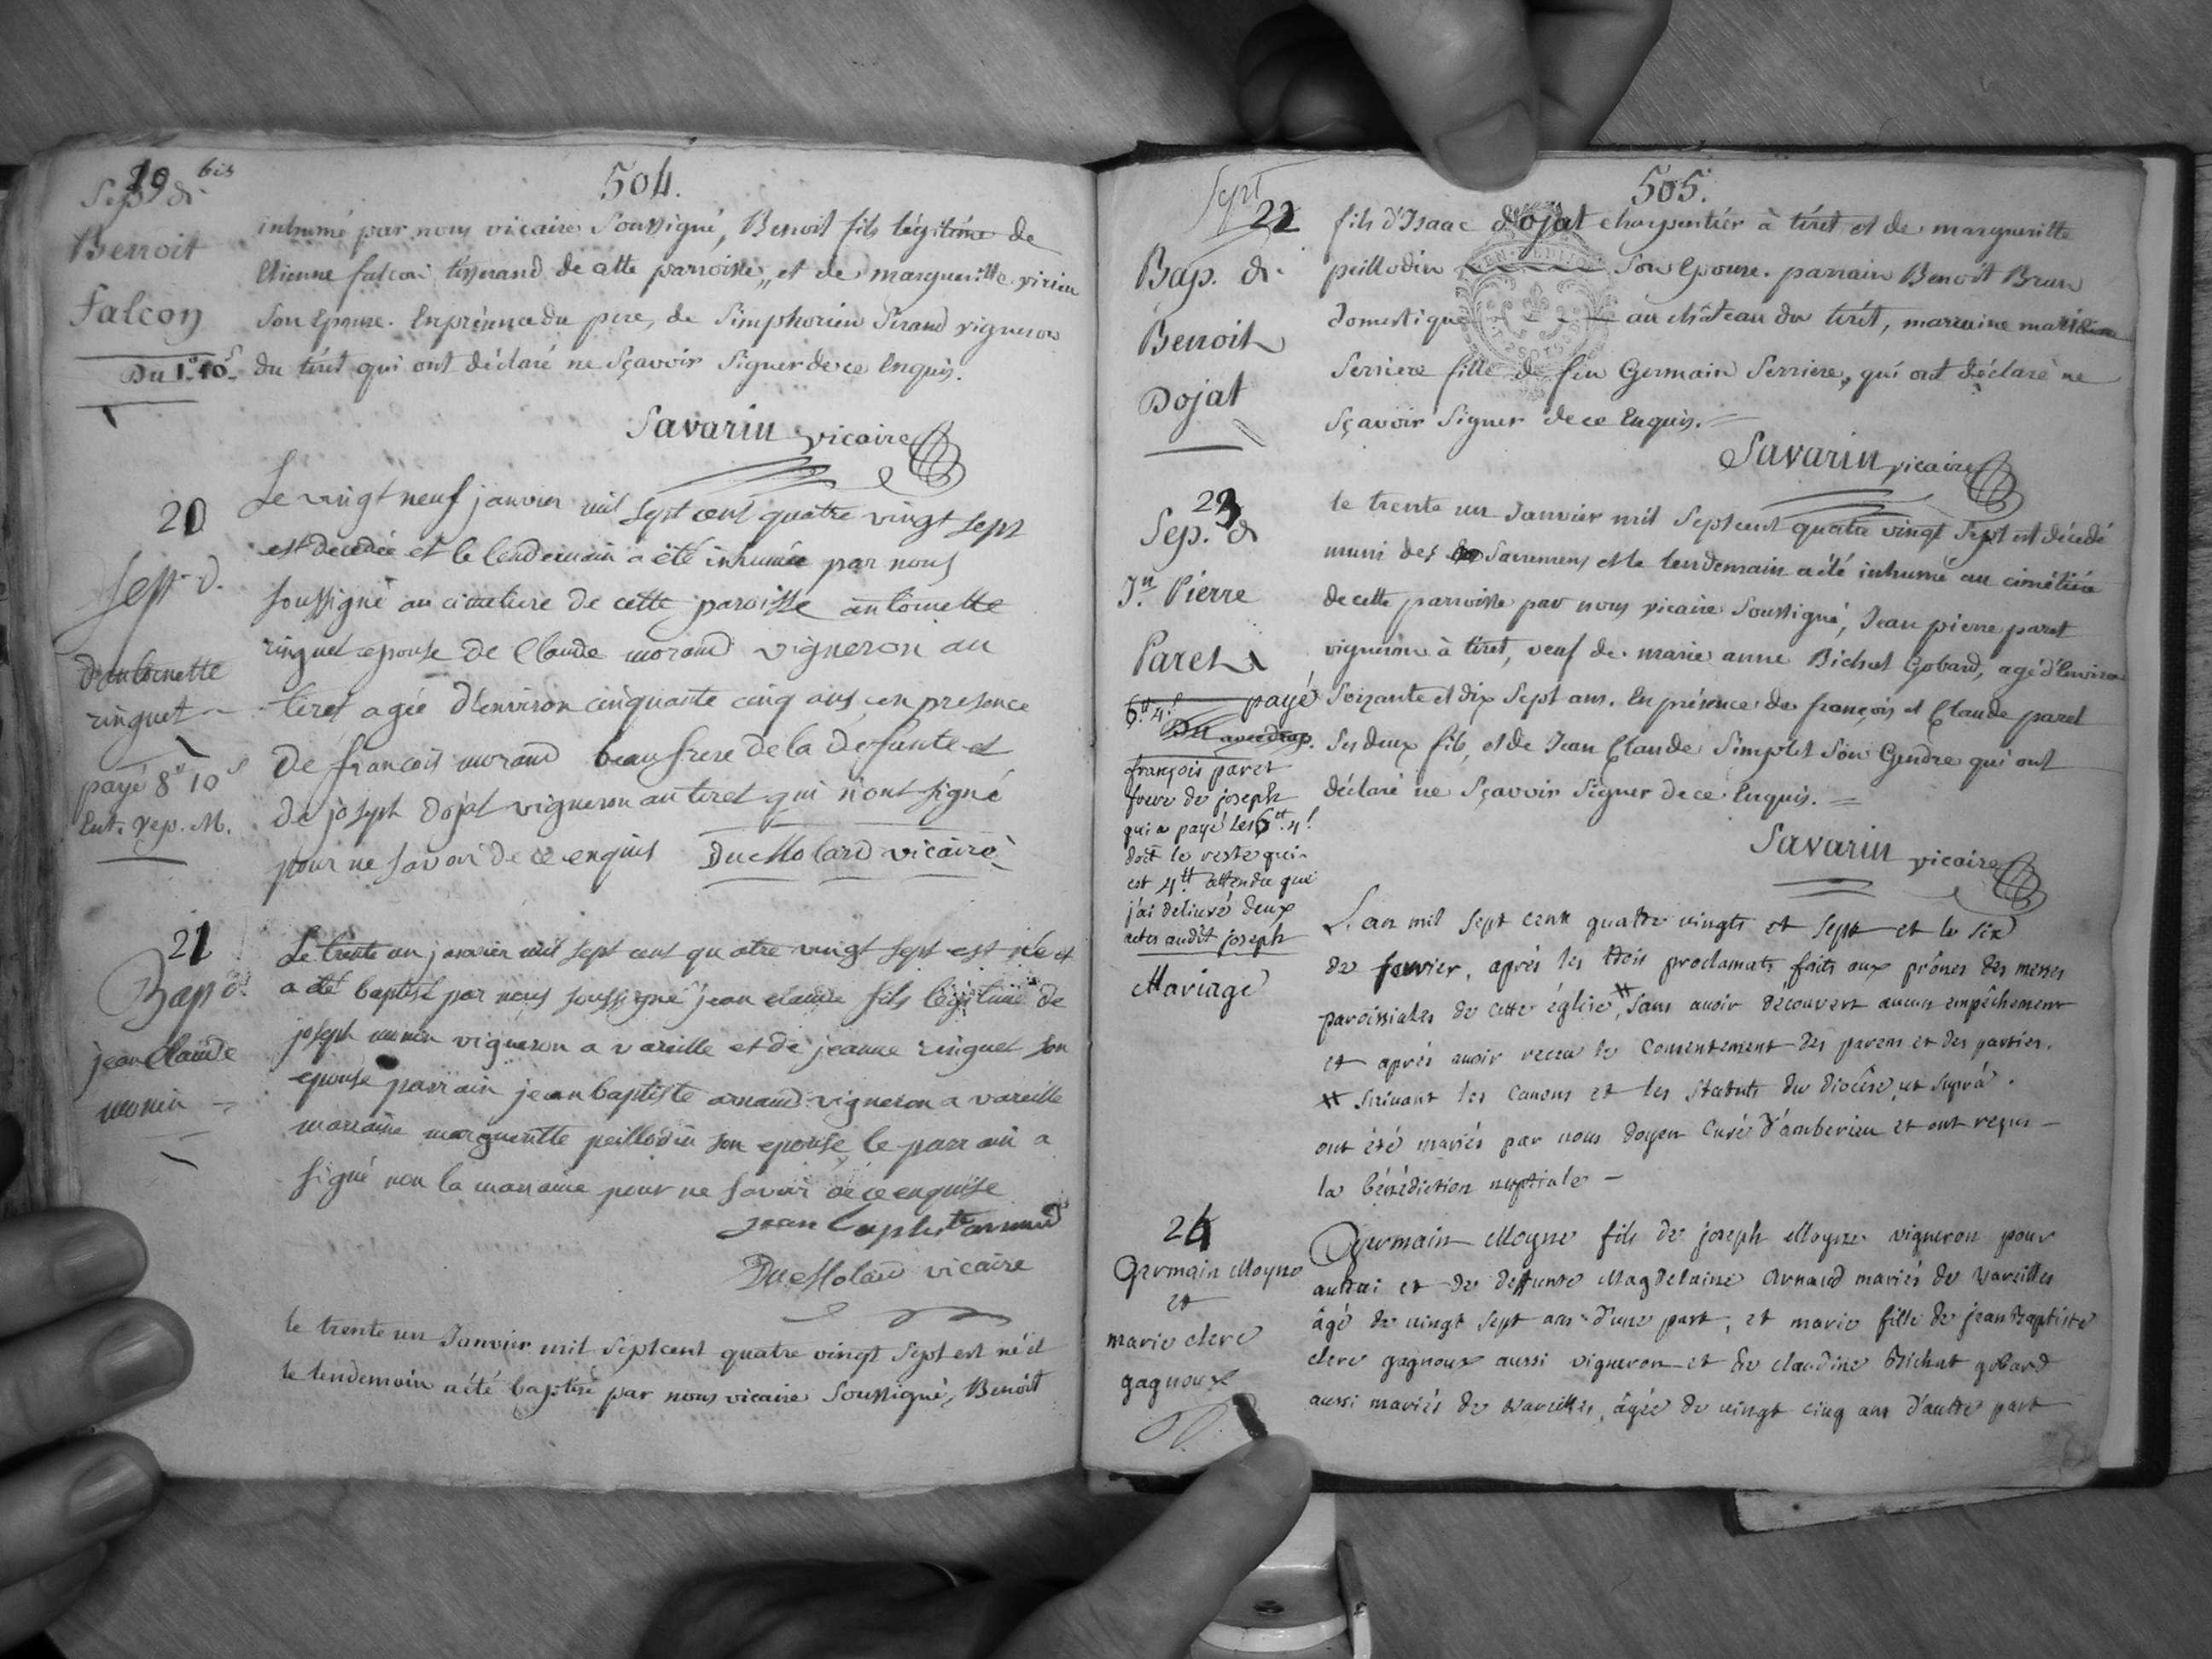 504.
19 bis
Sep. d.
Benoit
falcon
Du 1.ᵗᵗ 10.ˢ
inhumé par nous vicaire Soussigné, Benoit fils légitime de
Etienne falcon tisserand de cette parroisse, et de margueritte virieu
Son Epouse. En présence du pere, de Simphorien Sirand vigneron
du tirét qui ont déclaré ne Sçavoir Signer de ce Enquis.
Savarin vicaire
20
Sep. d.
d'antoinette
ringuet
payé 8ᵗᵗ 10ˢ
Ent. rep. M.
Le vingt neuf janvier mil sept cent quatre vingt sept
est decedée et le lendemain a été inhumée par nous
soussigné au cimetiere de cette paroisse antoinette
ringuet epouse de Claude morand vigneron au
tiret agée d'environ cinquante cinq ans, en presence
de francois morand beau frere de la defunte et
de joseph dojat vigneron au tiret qui n'ont signé
pour ne savoir de ce enquis Ducholard vicaire
21
Bap. d.
jean Claude
monin
Le trente un janvier mil sept cent quatre vingt sept est né et
a été baptisé par nous soussigné jean claude fils légitime de
joseph monin vigneron a vareille et de jeanne ringuet son
epouse parrain jean baptiste arnaud vigneron a vareille
marraine margueritte peillodin son epouse, le parrain a
signé non la marraine pour ne savoir de ce enquise
jean baptiste arnaud
Ducholard vicaire
le trente un Janvier mil Septcent quatre vingt Sept est né et
le lendemain a été baptisé par nous vicaire Soussigné, Benoit
505.
Sept
22
Bap. d.
Benoit
Dojat
fils d'Isaac dojat charpentier à tirét et de margueritte
peillodin Son Epouse. parrain Benoit Brun
domestique au château du tirét, marraine
Serriere fille de feu Germain Serriere, qui ont déclaré ne
Sçavoir Signer de ce Enquis.
Savarin vicaire
23
Sep. d.
J.ⁿ Pierre
Paret
6ᵗᵗ 4ˢ payé
françois paret
frere de joseph
qui a payé les 6ᵗᵗ 4ˢ
doit le reste qui
est 4ᵗᵗ attendu que
j'ai delivré deux
actes audit joseph
le trente un Janvier mil Septcent quatre vingt Sept est décédé
muni des Sacremens et le lendemain a été inhumé au cimetière
de cette parroisse par nous vicaire Soussigné, Jean pierre paret
vigneron à tirét, veuf de marie anne Bichat Gobard, agé d'Environ
Soixante et dix Sept ans. En présence de françois et Claude paret
Ses deux fils, et de Jean Claude Simplet Son Gendre qui ont
déclaré ne Sçavoir Signer de ce Enquis.
Savarin vicaire
Mariage
L'an mil sept cent quatre vingts et sept et le six
de fevrier, après les trois proclamats faits aux prônes des messes
paroissiales de cette église, # sans avoir decouvert aucun empêchement
et après avoir receu le consentement des parens et des parties.
# suivant les canons et les statuts du diocèse, ut suprà.
ont été mariés par nous doyen curé d'amberieu et ont reçus
la bénédiction nuptiale
24
Germain Moyne
et
marie clerc
gagnoux
Germain Moyne fils de joseph Moyne vigneron pour
autrui et de deffunte Magdelaine Arnaud mariés de Vareilles
âgé de vingt sept ans d'une part, et marie fille de jean Baptiste
clerc gagnoux aussi vigneron et de claudine Bichat gobard
aussi mariés de Vareilles, âgée de vingt cinq ans d'autre part